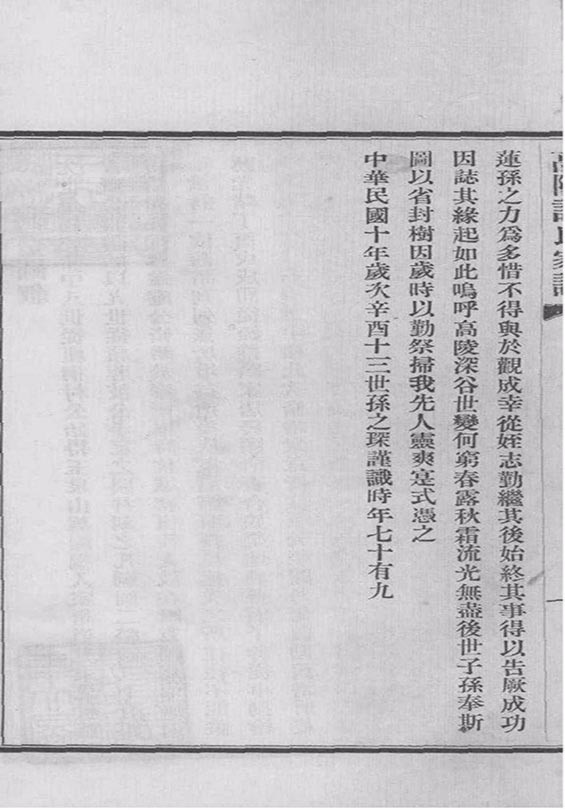 高陽許氏家譜
一
蓮孫之力爲多惜不得與於觀成幸從姪志勤繼其後始終其事得以告厥成功
因誌其緣起如此嗚呼高陵深谷世變何窮春露秋霜流光無盡後世子孫奉斯
圖以省封樹因歲時以勤祭掃我先人靈爽寔式憑之
中華民國十年歲次辛酉十三世孫之琛謹識時年七十有九